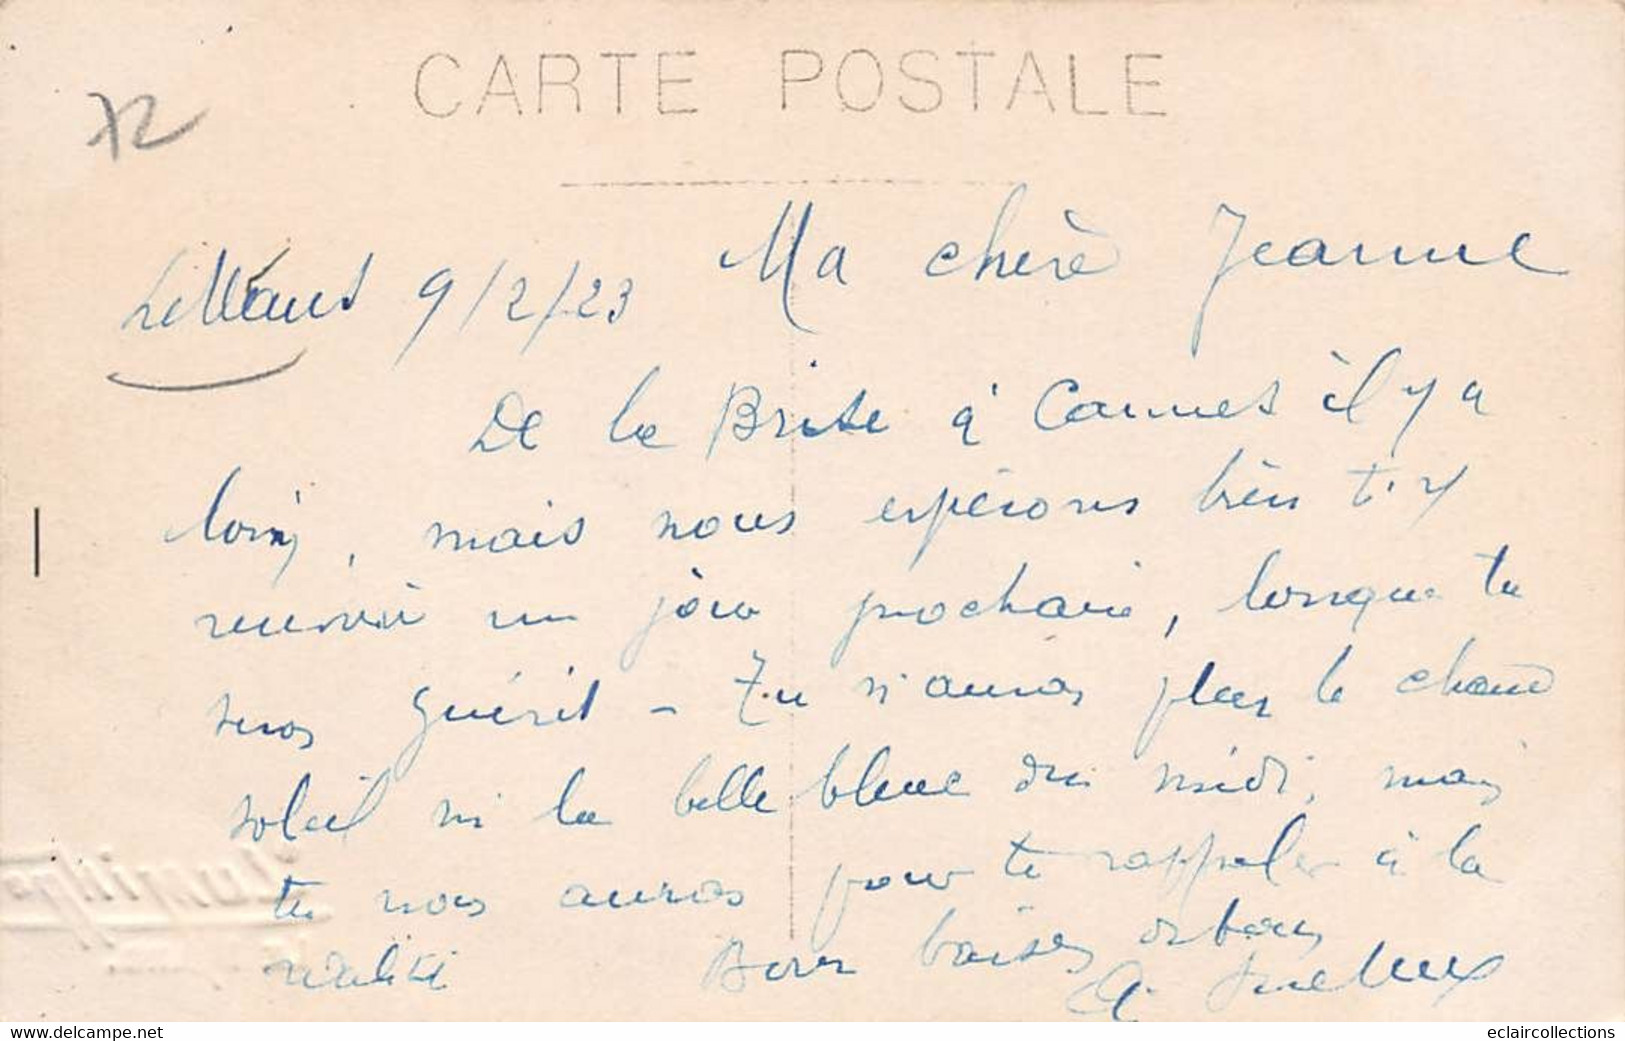 CARTE POSTALE
72
Le Mans 9/2/23 Ma chère Jeanne
De la Brise à Cannes il y a
loin, mais nous espérons bien t'y
revoir un jour prochain, lorsque tu
seras guérit - Tu n'auras plus le chaud
soleil ni la belle bleue du midi, mais
tu nous auras pour te rappeler à la
réalité Bons baisers de tous
A.
eclaircollections